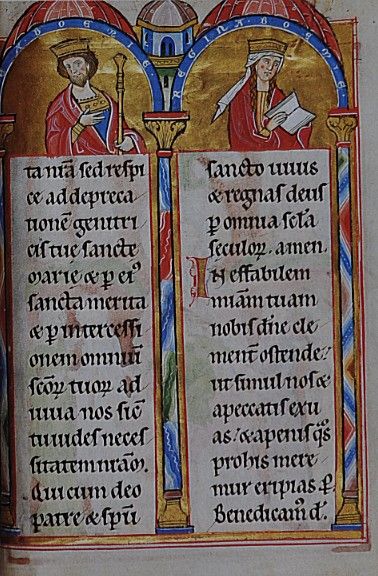 BOEMIE
REGINA BOEME
taniā sed respi
ce ad depreca
tionē genitri
cis tuę sanctę
marię & ꝑ ei⁹
sancta merita
& ꝑ intercessi
onem omniū
scōꝝ tuoꝝ ad
iuua nos sic̄
tu uides neces
sitatem nr̄am.
Qui cum deo
patre & spū
sancto uiuis
& regnas deus
ꝑ omnia scl̄a
seculoꝝ. amen.
In effabilem
miām tuam
nobis dn̄e cle
ment̄ ostende:
ut simul nos &
a peccatis exu
as: & a penis q̄s
pro his mere
mur eripias. ꝑ.
Benedicam̄ d.